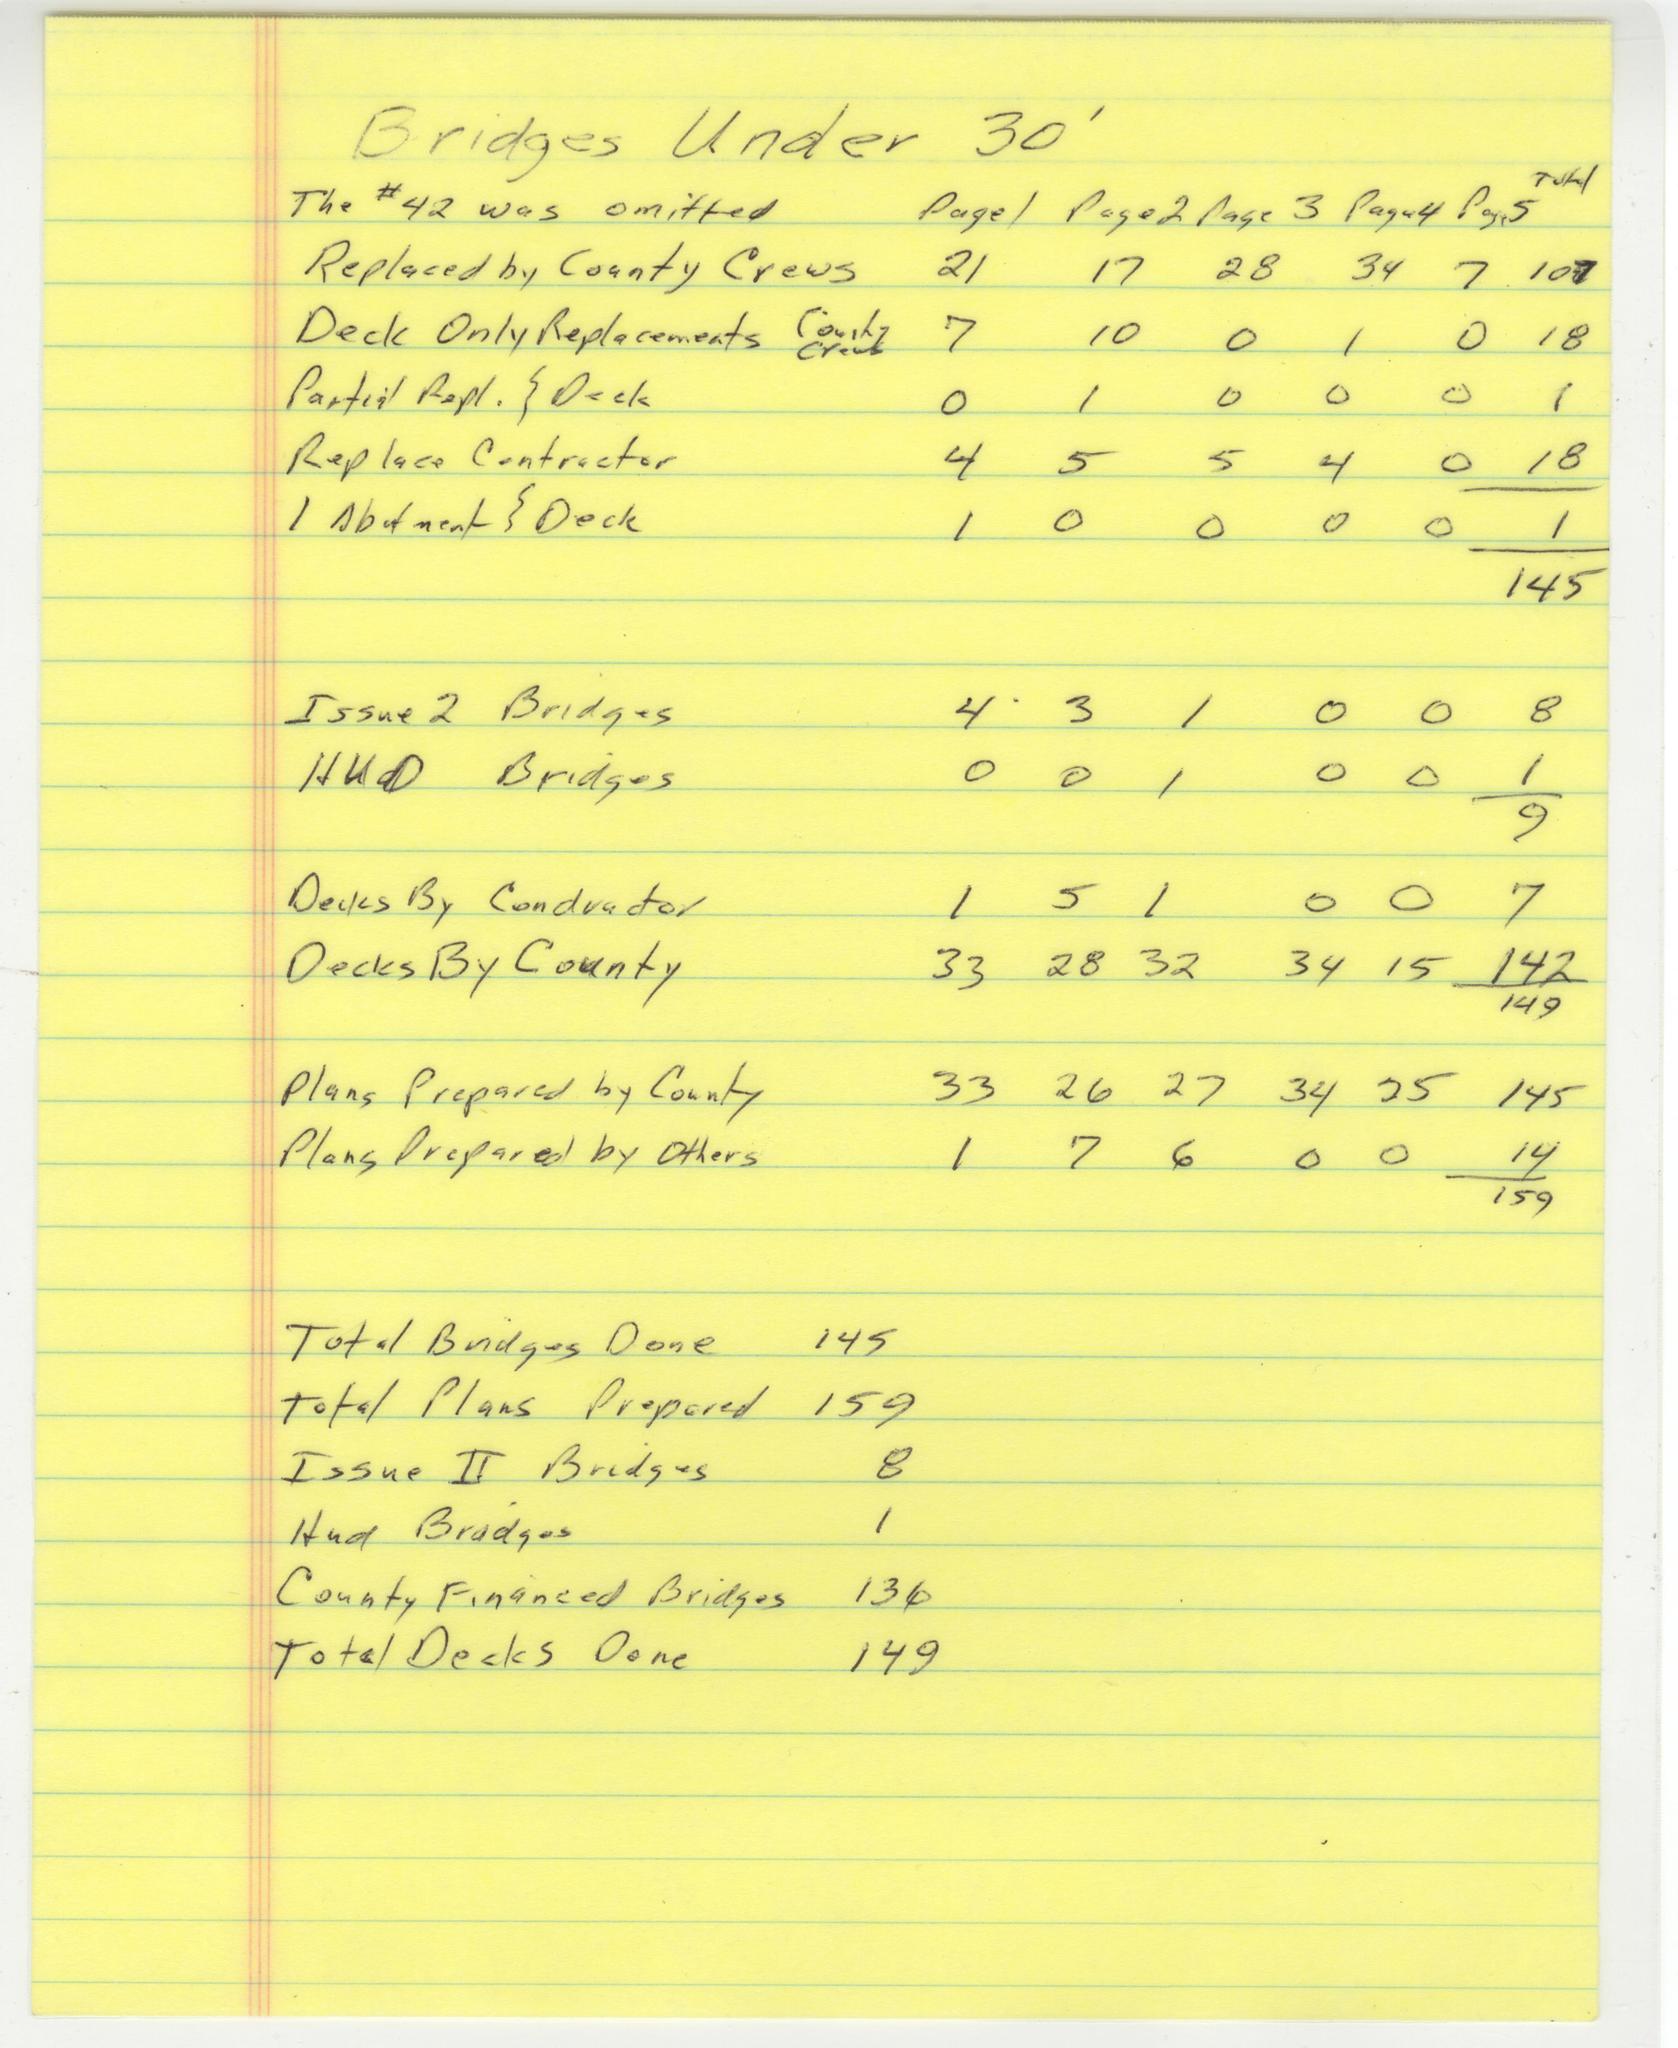 Bridges Under 30'
Total
The #42 was omitted Page 1 Page 2 Page 3 Page 4 Page 5
Replaced by County Crews 21 17 28 34 7 107
Deck Only Replacements County Crews 7 10 0 1 0 18
Partial Repl. & Deck 0 1 0 0 0 1
Replace Contractor 4 5 5 4 0 18
1 Abutment & Deck 1 0 0 0 0 1
145
Issue 2 Bridges 4 3 1 0 0 8
HUD Bridges 0 0 1 0 0 1
9
Decks By Condractor 1 5 1 0 0 7
Decks By County 33 28 32 34 15 142
149
Plans Prepared by County 33 26 27 34 25 145
Plans Prepared by Others 1 7 6 0 0 14
159
Total Bridges Done 145
Total Plans Prepared 159
Issue II Bridges 8
Hud Bradges 1
County Financed Bridges 136
Total Decks Done 149